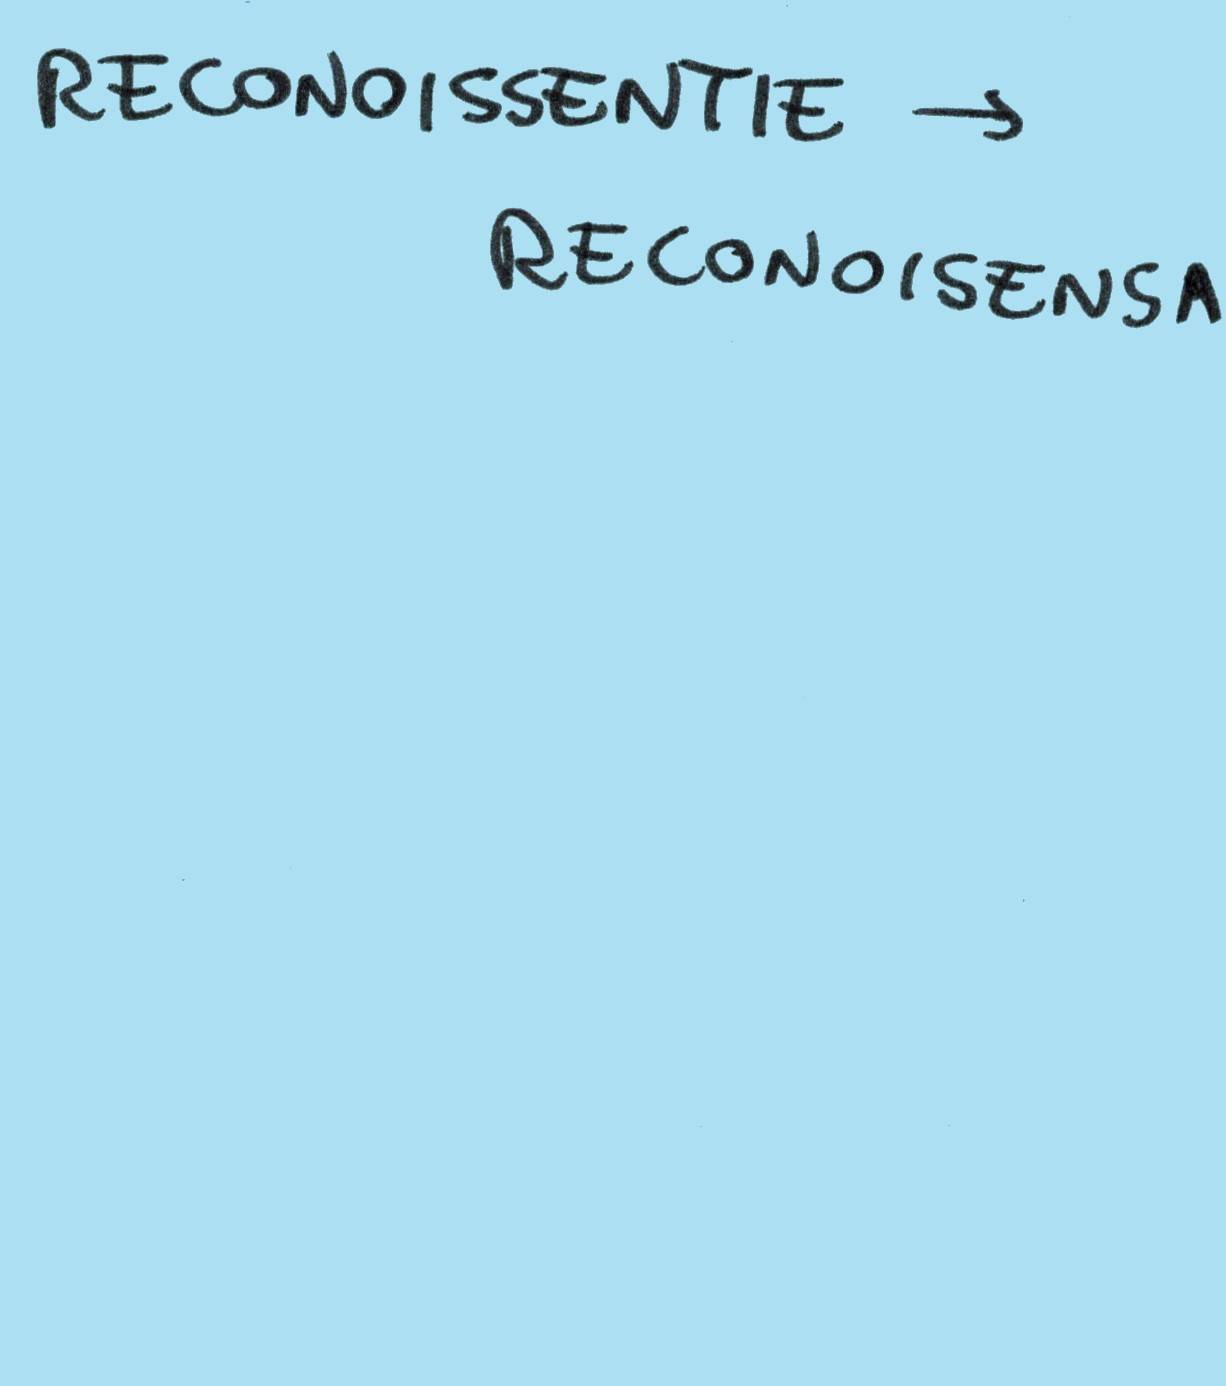 RECONOISSENTIE →
RECONOISENSA